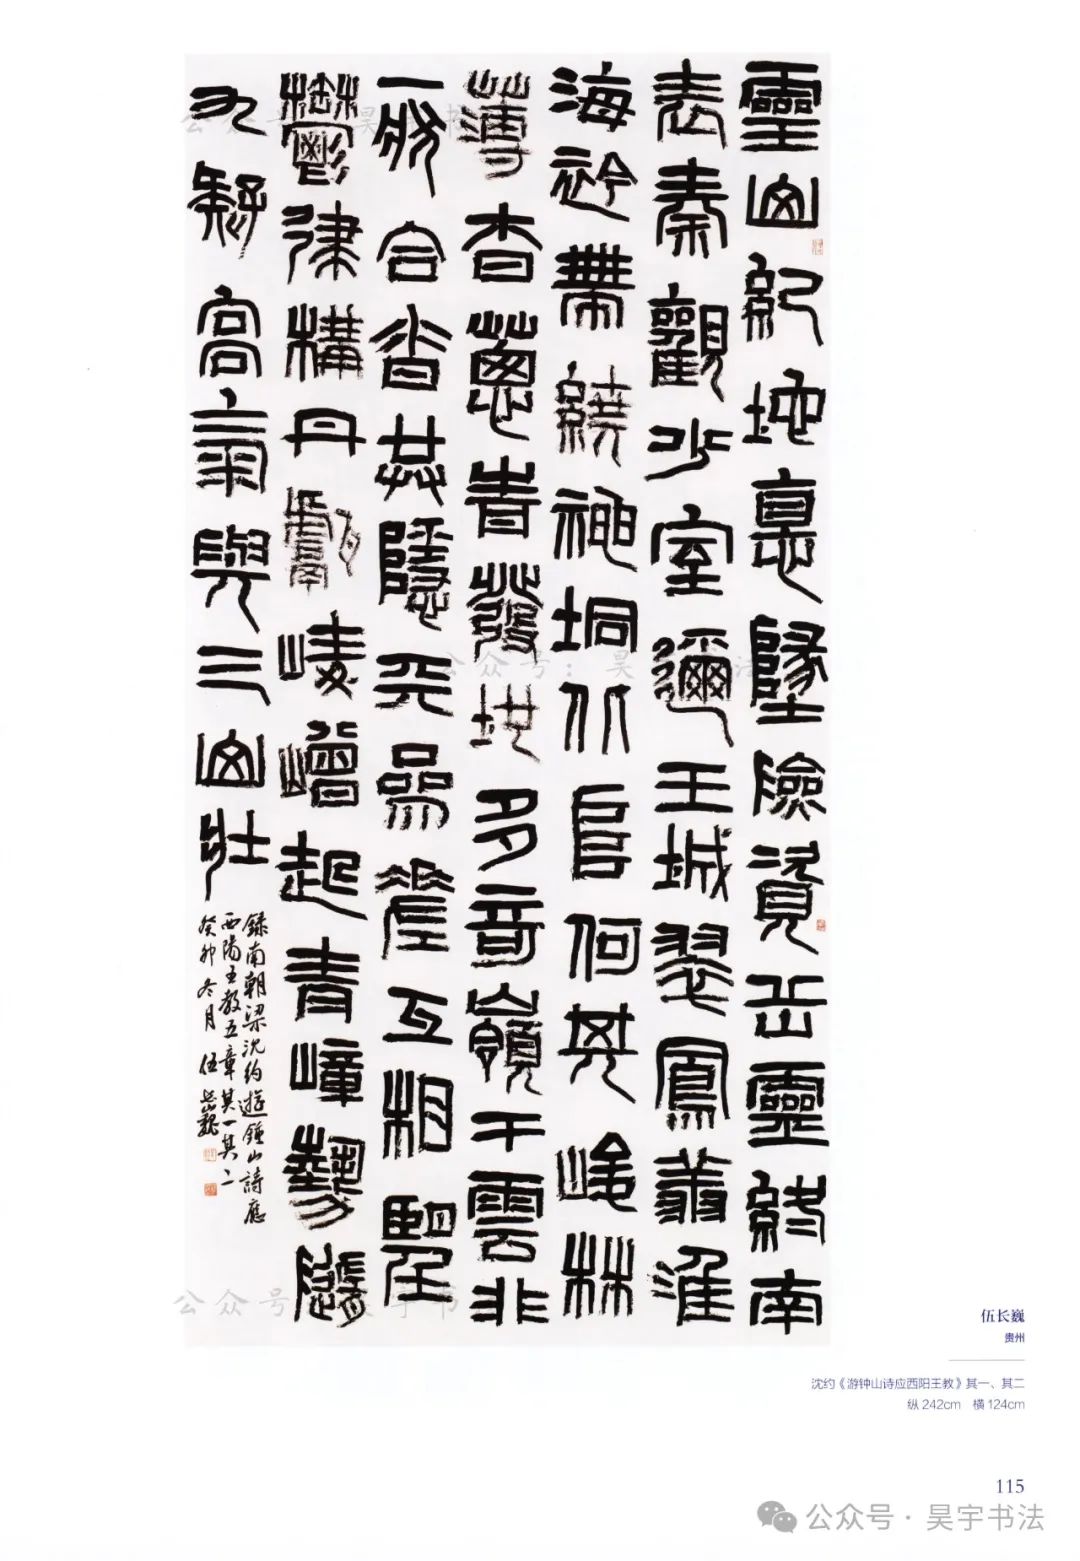 靈山紀地悳墬險資岳靈終南
表秦觀少室邇王城翠鳳翔淮
海衿帶繞神坰北阜何其峻林
薄杳蔥青發地多奇嶺干雲非
一狀合沓共隱天參差互相望
鬱律構丹巘崚嶒起青嶂勢隨
九疑高氣與三山壯
錄南朝梁沈約遊鍾山詩應
西陽王教五章其一其二
癸卯冬月 伍長巍
伍长巍
贵州
沈约《游钟山诗应西阳王教》其一、其二
纵 242cm 横 124cm
115
公众号·昊宇书法